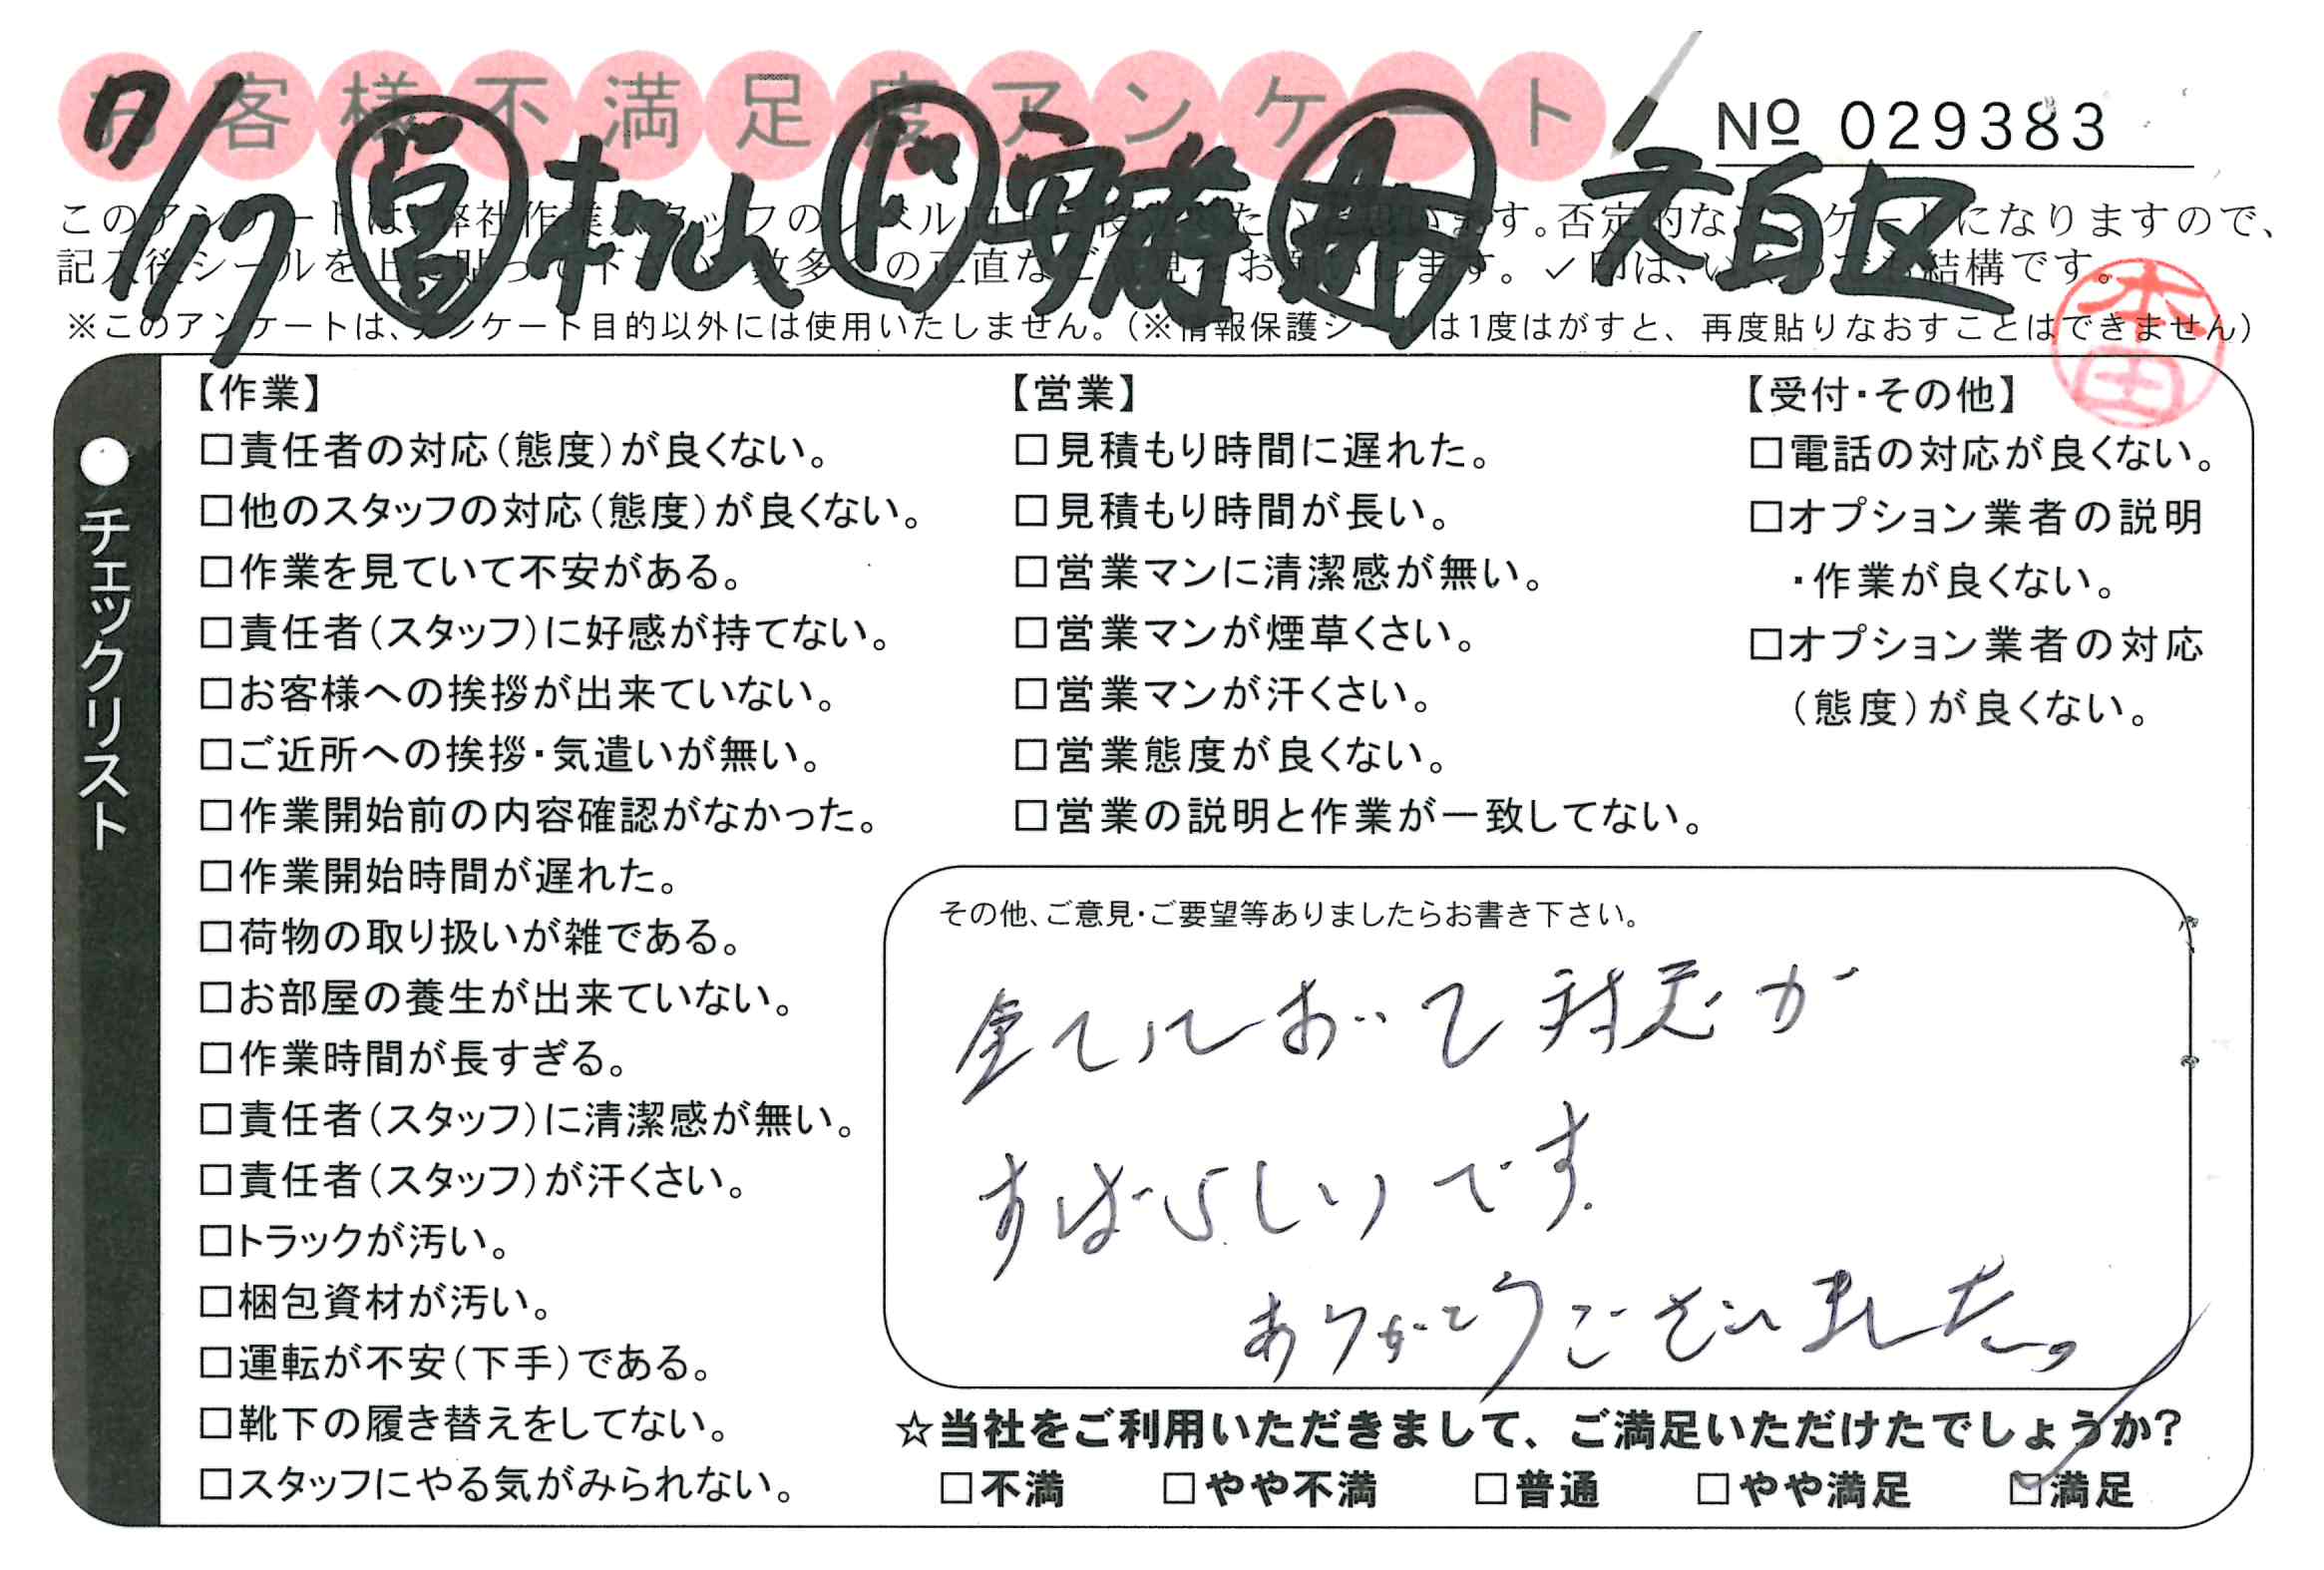 お客様不満足度アンケート
№ 029383
7/17 営 松山 ド 安藤 天白区
このアンケートは、弊社作業スタッフのレベル向上に役立てたいと思います。否定的なアンケートになりますので、
記入後シールを上に貼って下さい。数多くの正直なご意見をお願いします。✓印は、いくつでも結構です。
※このアンケートは、アンケート目的以外には使用いたしません。(※情報保護シールは1度はがすと、再度貼りなおすことはできません)
本田
●チェックリスト
【作業】
□責任者の対応(態度)が良くない。
□他のスタッフの対応(態度)が良くない。
□作業を見ていて不安がある。
□責任者(スタッフ)に好感が持てない。
□お客様への挨拶が出来ていない。
□ご近所への挨拶・気遣いが無い。
□作業開始前の内容確認がなかった。
□作業開始時間が遅れた。
□荷物の取り扱いが雑である。
□お部屋の養生が出来ていない。
□作業時間が長すぎる。
□責任者(スタッフ)に清潔感が無い。
□責任者(スタッフ)が汗くさい。
□トラックが汚い。
□梱包資材が汚い。
□運転が不安(下手)である。
□靴下の履き替えをしてない。
□スタッフにやる気がみられない。
【営業】
□見積もり時間に遅れた。
□見積もり時間が長い。
□営業マンに清潔感が無い。
□営業マンが煙草くさい。
□営業マンが汗くさい。
□営業態度が良くない。
□営業の説明と作業が一致してない。
【受付・その他】
□電話の対応が良くない。
□オプション業者の説明
・作業が良くない。
□オプション業者の対応
(態度)が良くない。
その他、ご意見・ご要望等ありましたらお書き下さい。
全てにおいて対応が
すばらしいです.
ありがとうございました。
☆当社をご利用いただきまして、ご満足いただけたでしょうか?
□不満 □やや不満 □普通 □やや満足 ☑満足